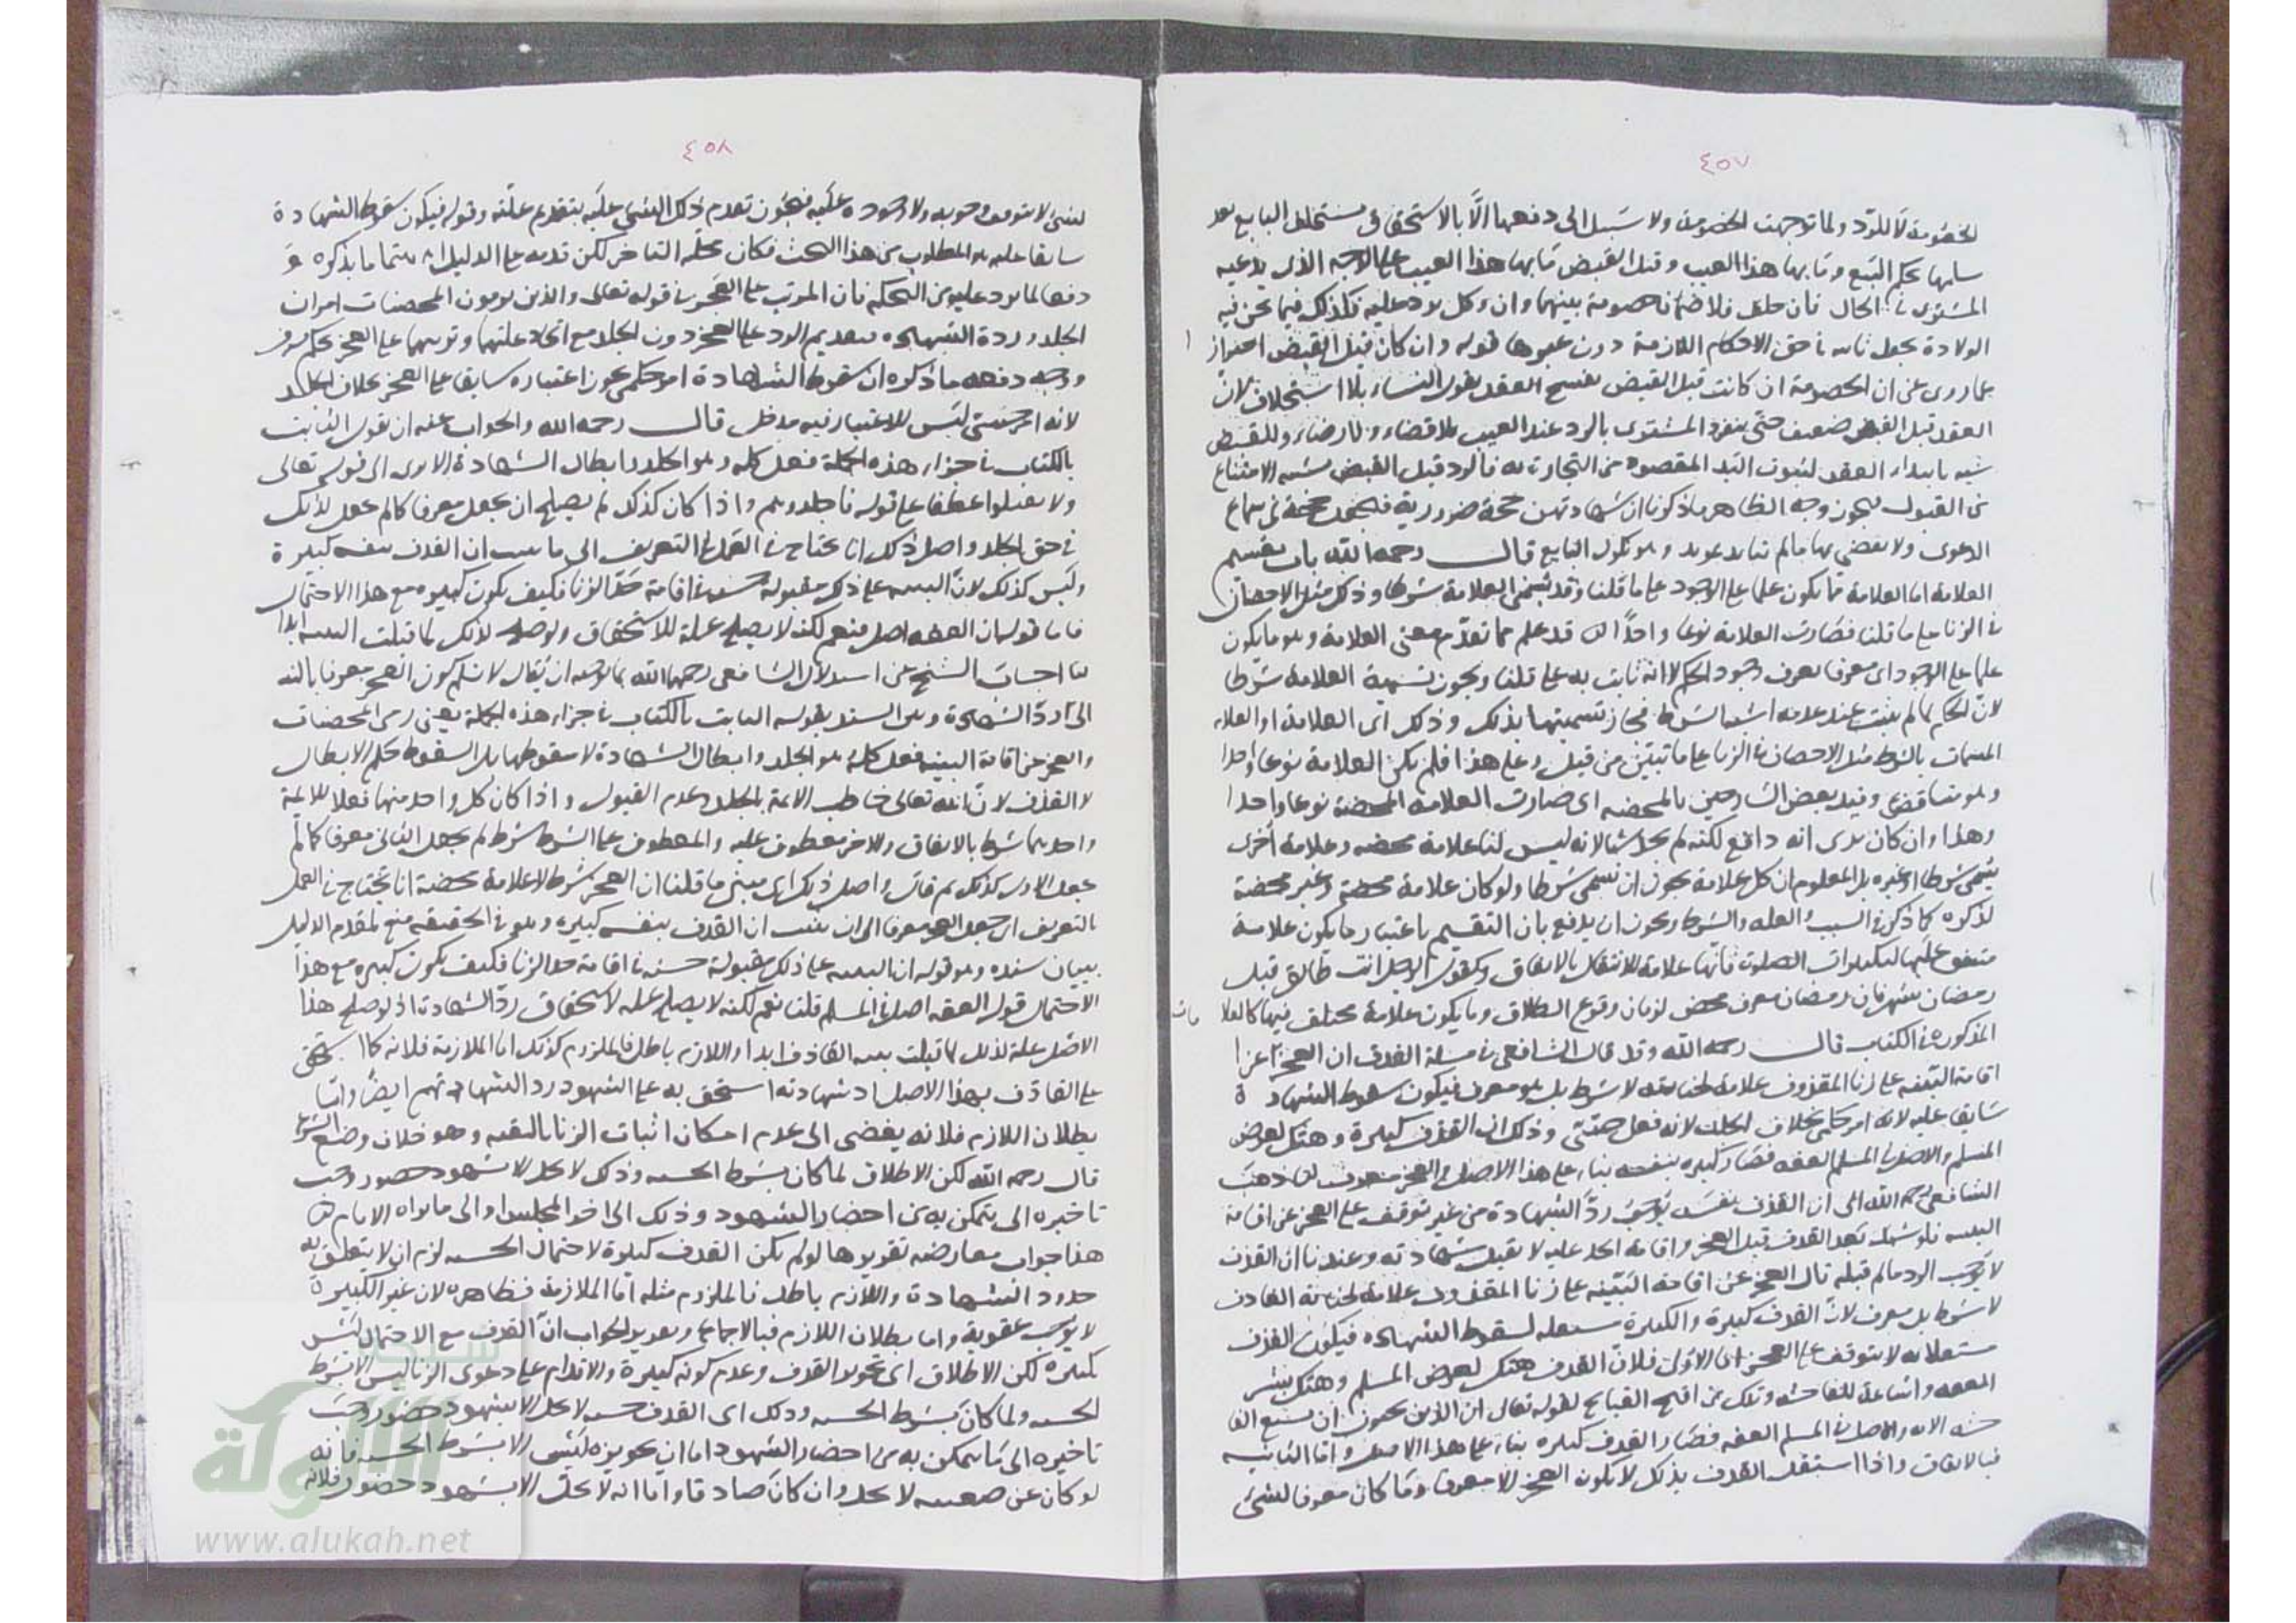 ٤٥٧
الخصومة لا للرد ولما توجهت الخصومة ولا سبيل الى دفعها الا بالاستحقاق يستحلف البايع بعد
سلمها بحكم البيع وما بها هذا العيب وقبل القبض ما بها هذا العيب على الوجه الذى يدعيه
المشترى فى الحال فان حلف فلا خصومة بينهما وان نكل يرد عليه فكذلك فيما نحن فيه
الولادة بجعل ثابتا فى حق الاحكام اللازمة دون غيرها قوله وان كان قبل القبض احتراز
عما روى عن ان الخصومة ان كانت قبل القبض يفسخ العقد بقول النساء بلا استحلاف لان
العقد قبل القبض ضعيف حتى ينفرد المشترى بالرد عند العيب بلا قضاء ولا رضاء وللقبض
شبه بابتداء العقد لثبوت اليد المقصودة من التجارات به فالرد قبل القبض يشبه الامتناع
عن القبول فيجوز وجه الظاهر ما ذكرنا ان شهادتهن حجة ضرورية فيجعل حجة فى سماع
الدعوى ولا يقضى بها ما لم تتايد بمويد وهو نكول البايع قال رحمه الله باب تقسيم
العلامة اما العلامة فما يكون علما على الوجود على ما قلنا وقد تسمى العلامة شرطا وذلك مثل الاحصان
فى الزنا على ما قلنا فصارت العلامة نوعا واحدا قد علم مما تقدم معنى العلامة وهو ما يكون
علما على الوجود اى معرفا يعرف وجود الحكم لا انه ثابت به على ما قلنا ويجوز تسمية العلامة شرطا
لان الحكم لما لم يثبت عند عدمه اشبه الشرط فجاز تسميتها بذلك وذلك اى العلامة او العلامة
المسمات بالشرط مثل الاحصان فى الزنا على ما تبين من قبل وعلى هذا فلم يكن العلامة نوعا واحدا
وهو تناقض وقيد بعض الشارحين بالمحضة اى صارت العلامة المحضة نوعا واحدا
وهذا وان كان يرى انه دافع لكنه لم يجد شيئا لانه ليس لنا علامة محضة وعلامة اخرى
تسمى شرطا او غيره بل المعلوم ان كل علامة يجوز ان تسمى شرطا ولو كان علامة محضة وغير محضة
لذكره كما ذكر فى السبب والعلة والشرط ويجوز ان يدفع بان التقسيم باعتبار ما يكون علامة
متفق عليها لتكبيرات الصلوت فانها علامة للانتقال بالاتفاق وكقول الرجل انت طالق قبل
رمضان بشهر فان رمضان معرف محض لزمان وقوع الطلاق وما يكون علامة مختلف فيها كالعلامات
المذكورة فى الكتاب قال رحمه الله وقد قال الشافعى فى مسئلة القذف ان العجز عن
اقامة البينة على زنا المقذوف علامة لجنايته لا شرط بل هو معرف فيكون سقوط الشهادة
سابقا عليه لانه امر حكمى بخلاف الجلد لانه فعل حسى وذلك ان القذف كبيرة وهتك لعرض
المسلم والاصل فى المسلم العفة فصار كبيرة بنفسه بناء على هذا الاصل والعجز معرف ذهب
الشافعى رحمه الله الى ان القذف بنفسه يوجب رد الشهادة من غير توقف على العجز عن اقامة
البينة فلو شهد بعد القذف قبل العجز واقامة الحد عليه لا تقبل شهادته وعندنا ان القذف
لا يوجب الرد ما لم قبله قال العجز عن اقامة البينة على زنا المقذوف علامة لجناية القاذف
لا شرط بل معرف لان القذف كبيرة والكبيرة مستقلة لسقوط الشهادة فيكون القذف
مستقلا به لا يتوقف على العجز اما الاولى فلان القذف هتك لعرض المسلم وهتك ستر
العفة واشاعة للفاحشة وتلك من اقبح القبايح لقوله تعالى ان الذين يحبون ان تشيع الفا
حشة الاية والاصل فى المسلم العفة فصار القذف كبيرة بناء على هذا الاصل واما الثانية
فبالاتفاق واذا استقل القذف بذلك لا يكون العجز الا معرفا وما كان معرفا لشئ
٤٥٨
لشئ لا يتوقف وجوبه ولا وجوده عليه فيجوز تقدم ذلك الشئ عليه بتقدم علته وقوله فيكون سقوط الشهادة
سابقا عليه هو المطلوب من هذا البحث فكان محله التاخر لكن قدمه على الدليل اهتماما بذكره و
دفعا لما يرد عليه من التحكم فان المرتب على العجز فى قوله تعالى والذين يرمون المحصنات امران
الجلد ورد الشهادة فتقديم الرد على العجز دون الجلد مع اتحاد علتهما وترتبهما على العجز تحكم صرف
ووجه دفعه ما ذكره ان سقوط الشهادة امر حكمى يجوز اعتباره سابقا على العجز بخلاف الجلد
لانه امر حسى ليس للاعتبار فيه مدخل قال رحمه الله والجواب عنه ان نقول الثابت
بالكتاب فى جزاء هذه الجملة فعل كله وهو الجلد وابطال الشهادة الا يرى الى قوله تعالى
ولا تقبلوا عطفا على قوله فاجلدوهم واذا كان كذلك لم يصلح ان يجعل معرفا كما لم يجعل لذلك
فى حق الجلد واصل ذلك انا نحتاج فى العمل بالتعريف الى ما يثبت ان القذف بنفسه كبيرة
وليس كذلك لان البينة على ذلك مقبولة حسبة فى اقامة حد الزنا فكيف يكون كبيرة مع هذا الاحتمال
فاما قوله ان العفة اصل فنعم لكنه لا يصلح علة للاستحقاق ولو صلح لذلك لما قبلت البينة ابدا
اجاب الشيخ عن استدلال الشافعى رحمهما الله بما توجيهه ان يقال لا نسلم كون العجز معرفا بالنسبة
الى رد الشهادة وبين السند بقوله الثابت بالكتاب فى جزاء هذه الجملة يعنى رمى المحصنات
والعجز عن اقامة البينة فعل كله هو الجلد وابطال الشهادة لا سقوطها بل السقوط حكم الابطال
لا القذف لان الله تعالى خاطب الائمة بالجلد وعدم القبول واذا كان كل واحد منهما فعلا للائمة
واحدهما شرط بالاتفاق والاخر معطوف عليه والمعطوف على الشرط شرط لم يجعل الثانى معرفا كما لم
يجعل الاول كذلك ثم قال واصل ذلك اى مبنى ما قلنا ان العجز شرط لا علامة محضة انا نحتاج فى العمل
بالتعريف اى جعل العجز معرفا الى ان يثبت ان القذف بنفسه كبيرة وهو فى الحقيقة منع لمقدم الدليل
ببيان سنده وهو قوله ان البينة على ذلك مقبولة حسبة فى اقامة حد الزنا فكيف يكون كبيرة مع هذا
الاحتمال قوله العفة اصل فى المسلم قلنا نعم لكنه لا يصلح علة لاستحقاق رد الشهادة اذ لو صلح هذا
الاصل علة لذلك لما قبلت بينة القاذف ابدا واللازم باطل فالملزوم كذلك اما الملازمة فلانه كما استحق
على القاذف بهذا الاصل رد شهادته استحق به على الشهود رد الشهادتهم ايضا واما
بطلان اللازم فلانه يفضى الى عدم امكان اثبات الزنا بالبينة وهو خلاف وضع الشرع
قال رحمه الله لكن الاطلاق لما كان بشرط الحسبة وذلك لا يحل الا بشهود حضور وجب
تاخيره الى ما يتمكن به من احضار الشهود وذلك الى اخر المجلس او الى ما يراه الامام
هذا جواب معارضة تقريرها لو لم يكن القذف كبيرة لاحتمال الحسبة لزم ان لا يتعلق به
حد ورد الشهادة واللازم باطل فالملزوم مثله اما الملازمة فظاهرة لان غير الكبيرة
لا يوجب عقوبة واما بطلان اللازم فبالاجماع وتقرير الجواب ان القذف مع الاحتمال ليس
كبيرة لكن الاطلاق اى تجويز القذف وعدم كونه كبيرة والاقدام على دعوى الزنا ليس الا بشرط
الحسبة ولما كان بشرط الحسبة وذلك اى القذف حسبة لا يحل الا بشهود حضور وجب
تاخيره الى ما يتمكن به من احضار الشهود اما ان تجويزه ليس الا بشرط الحسبة فانه
لو كان عن ضغينة لا يحل وان كان صادقا واما انه لا يحل الا بشهود حضور فلانه
الألوكة
www.alukah.net